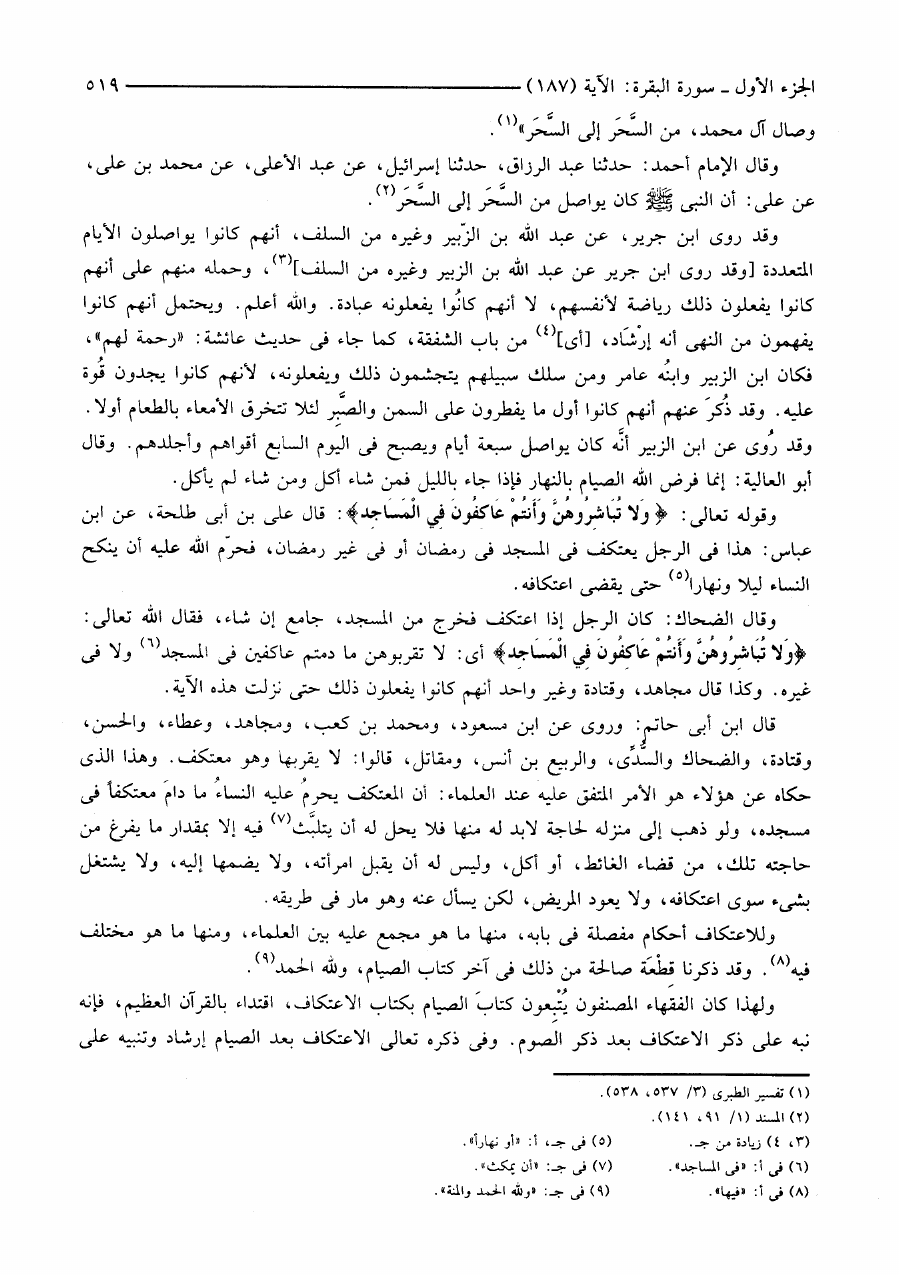 الجزء الأول ـ سورة البقرة: الآية (١٨٧) ٥١٩
وصال آل محمد، من السَّحَر إلى السَّحَر»(١).
وقال الإمام أحمد: حدثنا عبد الرزاق، حدثنا إسرائيل، عن عبد الأعلى، عن محمد بن على،
عن على: أن النبى ﷺ كان يواصل من السَّحَر إلى السَّحَر(٢).
وقد روى ابن جرير، عن عبد الله بن الزّبير وغيره من السلف، أنهم كانوا يواصلون الأيام
المتعددة [وقد روى ابن جرير عن عبد الله بن الزبير وغيره من السلف](٣)، وحمله منهم على أنهم
كانوا يفعلون ذلك رياضة لأنفسهم، لا أنهم كانُوا يفعلونه عبادة. والله أعلم. ويحتمل أنهم كانوا
يفهمون من النهى أنه إرْشَاد، [أى](٤) من باب الشفقة، كما جاء فى حديث عائشة: «رحمة لهم»،
فكان ابن الزبير وابنُه عامر ومن سلك سبيلهم يتجشمون ذلك ويفعلونه، لأنهم كانوا يجدون قُوة
عليه. وقد ذُكرَ عنهم أنهم كانوا أول ما يفطرون على السمن والصَّبِر لئلا تتخرق الأمعاء بالطعام أولا.
وقد رُوى عن ابن الزبير أنَّه كان يواصل سبعة أيام ويصبح فى اليوم السابع أقواهم وأجلدهم. وقال
أبو العالية: إنما فرض الله الصيام بالنهار فإذا جاء بالليل فمن شاء أكل ومن شاء لم يأكل.
وقوله تعالى: ﴿ وَلا تُبَاشِرُوهُنَّ وَأَنتُمْ عَاكِفُونَ فِي الْمَسَاجِد﴾: قال على بن أبى طلحة، عن ابن
عباس: هذا فى الرجل يعتكف فى المسجد فى رمضان أو فى غير رمضان، فحرّم الله عليه أن ينكح
النساء ليلا ونهارا(٥) حتى يقضى اعتكافه.
وقال الضحاك: كان الرجل إذا اعتكف فخرج من المسجد، جامع إن شاء، فقال الله تعالى:
﴿وَلا تُبَاشِرُوهُنَّ وَأَنتُمْ عَاكِفُونَ فِي الْمَسَاجِد﴾ أى: لا تقربوهن ما دمتم عاكفين فى المسجد(٦) ولا فى
غيره. وكذا قال مجاهد، وقتادة وغير واحد أنهم كانوا يفعلون ذلك حتى نزلت هذه الآية.
قال ابن أبى حاتم: وروى عن ابن مسعود، ومحمد بن كعب، ومجاهد، وعطاء، والحسن،
وقتادة، والضحاك والسُّدِّى، والربيع بن أنس، ومقاتل، قالوا: لا يقربها وهو معتكف. وهذا الذى
حكاه عن هؤلاء هو الأمر المتفق عليه عند العلماء: أن المعتكف يحرمُ عليه النساءُ ما دامَ معتكفاً فى
مسجده، ولو ذهب إلى منزله لحاجة لابد له منها فلا يحل له أن يتلبَّث(٧) فيه إلا بمقدار ما يفرغ من
حاجته تلك، من قضاء الغائط، أو أكل، وليس له أن يقبل امرأته، ولا يضمها إليه، ولا يشتغل
بشىء سوى اعتكافه، ولا يعود المريض، لكن يسأل عنه وهو مار فى طريقه.
وللاعتكاف أحكام مفصلة فى بابه، منها ما هو مجمع عليه بين العلماء، ومنها ما هو مختلف
فيه(٨). وقد ذكرنا قِطْعَة صالحة من ذلك فى آخر كتاب الصيام، ولله الحمد(٩).
ولهذا كان الفقهاء المصنفون يُتْبِعون كتابَ الصيام بكتاب الاعتكاف، اقتداء بالقرآن العظيم، فإنه
نبه على ذكر الاعتكاف بعد ذكر الصوم. وفى ذكره تعالى الاعتكاف بعد الصيام إرشاد وتنبيه على
(١) تفسير الطبرى (٣/ ٥٣٧، ٥٣٨).
(٢) المسند (١/ ٩١، ١٤١).
(٣، ٤) زيادة من جـ. (٥) فى جـ، أ: «أو نهاراً».
(٦) فى أ: «فى المساجد». (٧) فى جـ: «أن يمكث».
(٨) فى أ: «فيها». (٩) فى جـ: «ولله الحمد والمنة».